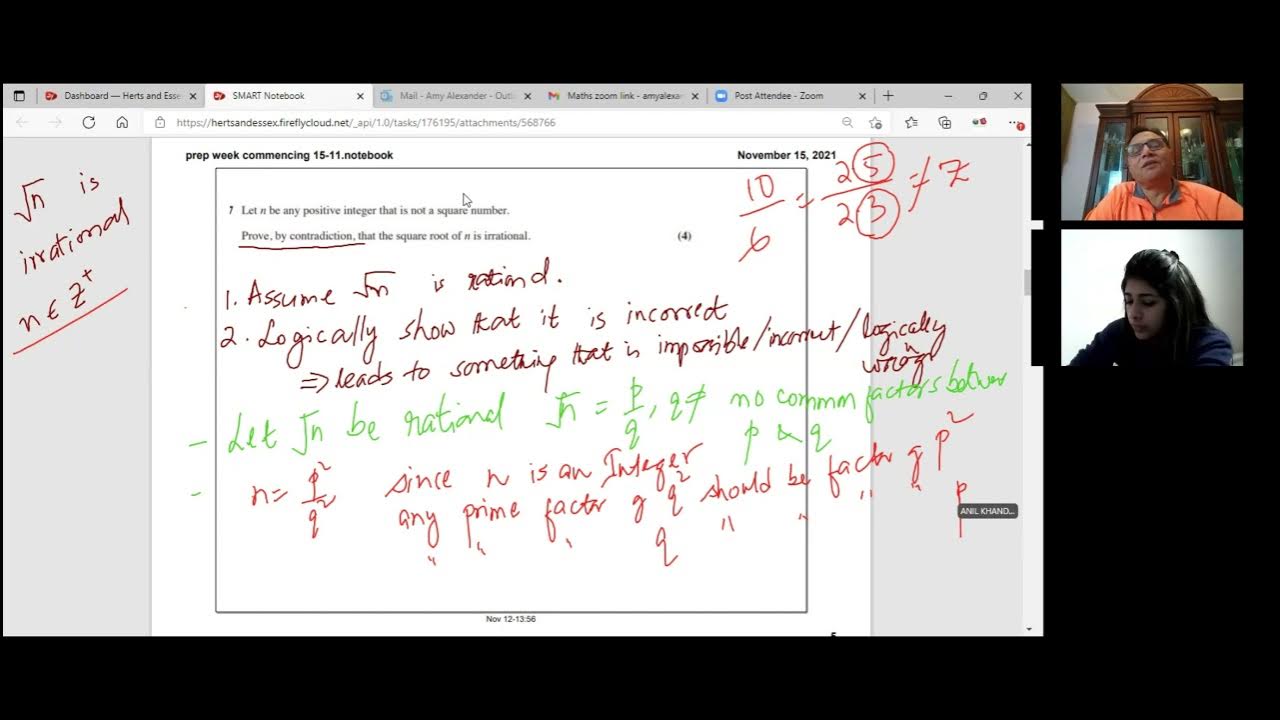 Dashboard — Herts and Esse
SMART Notebook
Mail - Amy Alexander - Outl
Maths zoom link - amyalexa
Post Attendee - Zoom
https://hertsandessex.fireflycloud.net/_api/1.0/tasks/176195/attachments/568766
prep week commencing 15-11.notebook
November 15, 2021
√n is
irrational
n ∈ Z⁺
10/6 = 2 5/2 3 ≠ Z
7 Let n be any positive integer that is not a square number.
Prove, by contradiction, that the square root of n is irrational.
(4)
1. Assume √n is rational.
2. Logically show that it is incorrect
⇒ leads to something that is impossible/incorrect/logically
wrong
- Let √n be rational √n = p/q, q≠ no common factors between
p & q
- n = p²/q² since n is an Integer
any prime factor of q² should be factor of p²
" " " q " " " " p
ANIL KHAND...
Nov 12-13:56
5